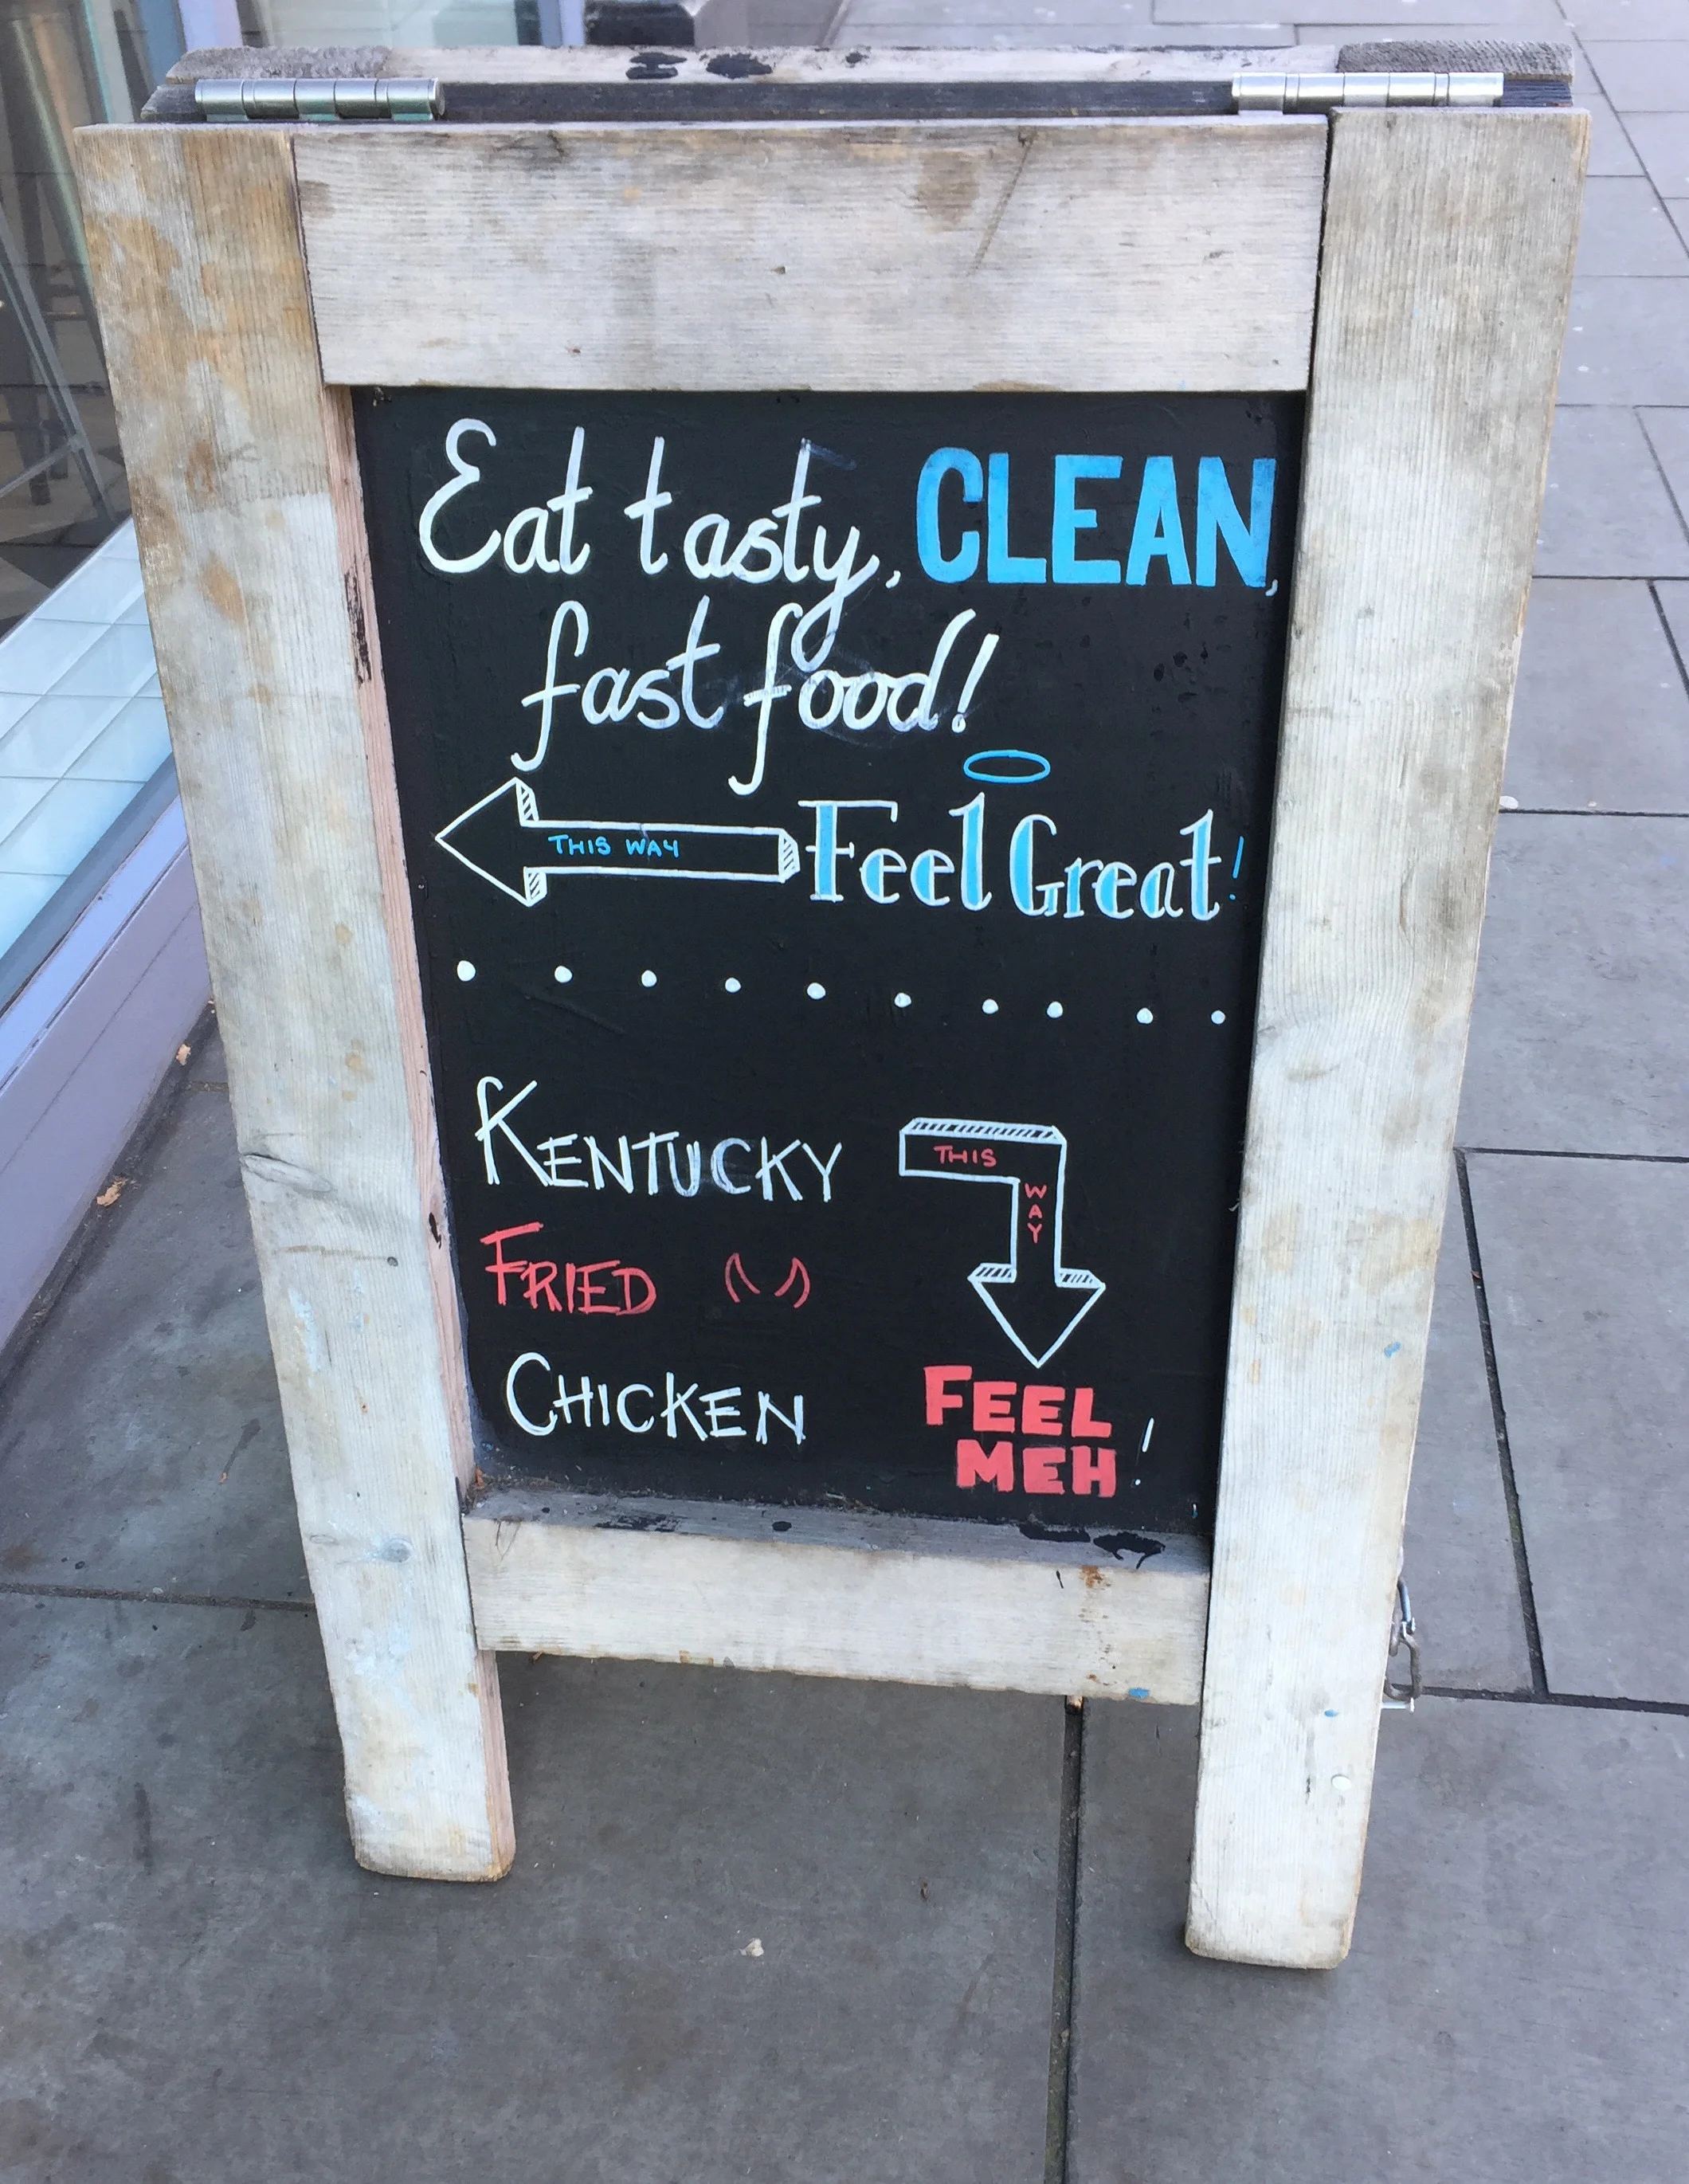 Eat tasty, CLEAN,
fast food!
THIS WAY
Feel Great!
KENTUCKY
FRIED
CHICKEN
THIS
WAY
FEEL
MEH!